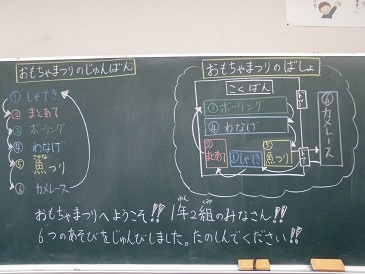 おもちゃまつりのじゅんばん
① しゃてき
② まとあて
③ ボーリング
④ わなげ
⑤ 魚つり
⑥ カメレース
おもちゃまつりのばしょ
こくばん
③ ボーリング
④ わなげ
② まとあて
① しゃてき
⑤ 魚つり
⑥ カメレース
おもちゃまつりへようこそ!! 1年2組のみなさん!!
6つのあそびをじゅんびしました。たのしんでください!!